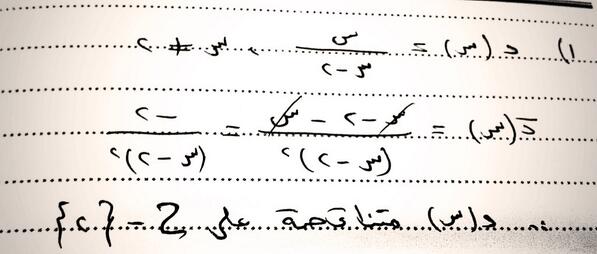 ١) د (س) = س / (س - ٢) ، س ≠ ٢
دَ (س) = (س - ٢ - س) / (س - ٢)^٢ = -٢ / (س - ٢)^٢
∴ د(س) متناقصة على ح - {٢}